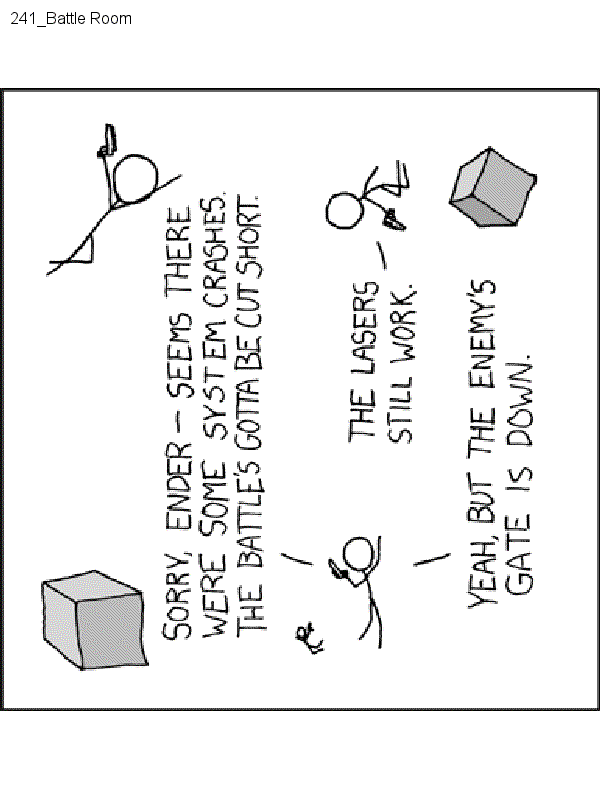 241_Battle Room
SORRY, ENDER – SEEMS THERE
WERE SOME SYSTEM CRASHES.
THE BATTLE'S GOTTA BE CUT SHORT.
THE LASERS
STILL WORK.
YEAH, BUT THE ENEMY'S
GATE IS DOWN.